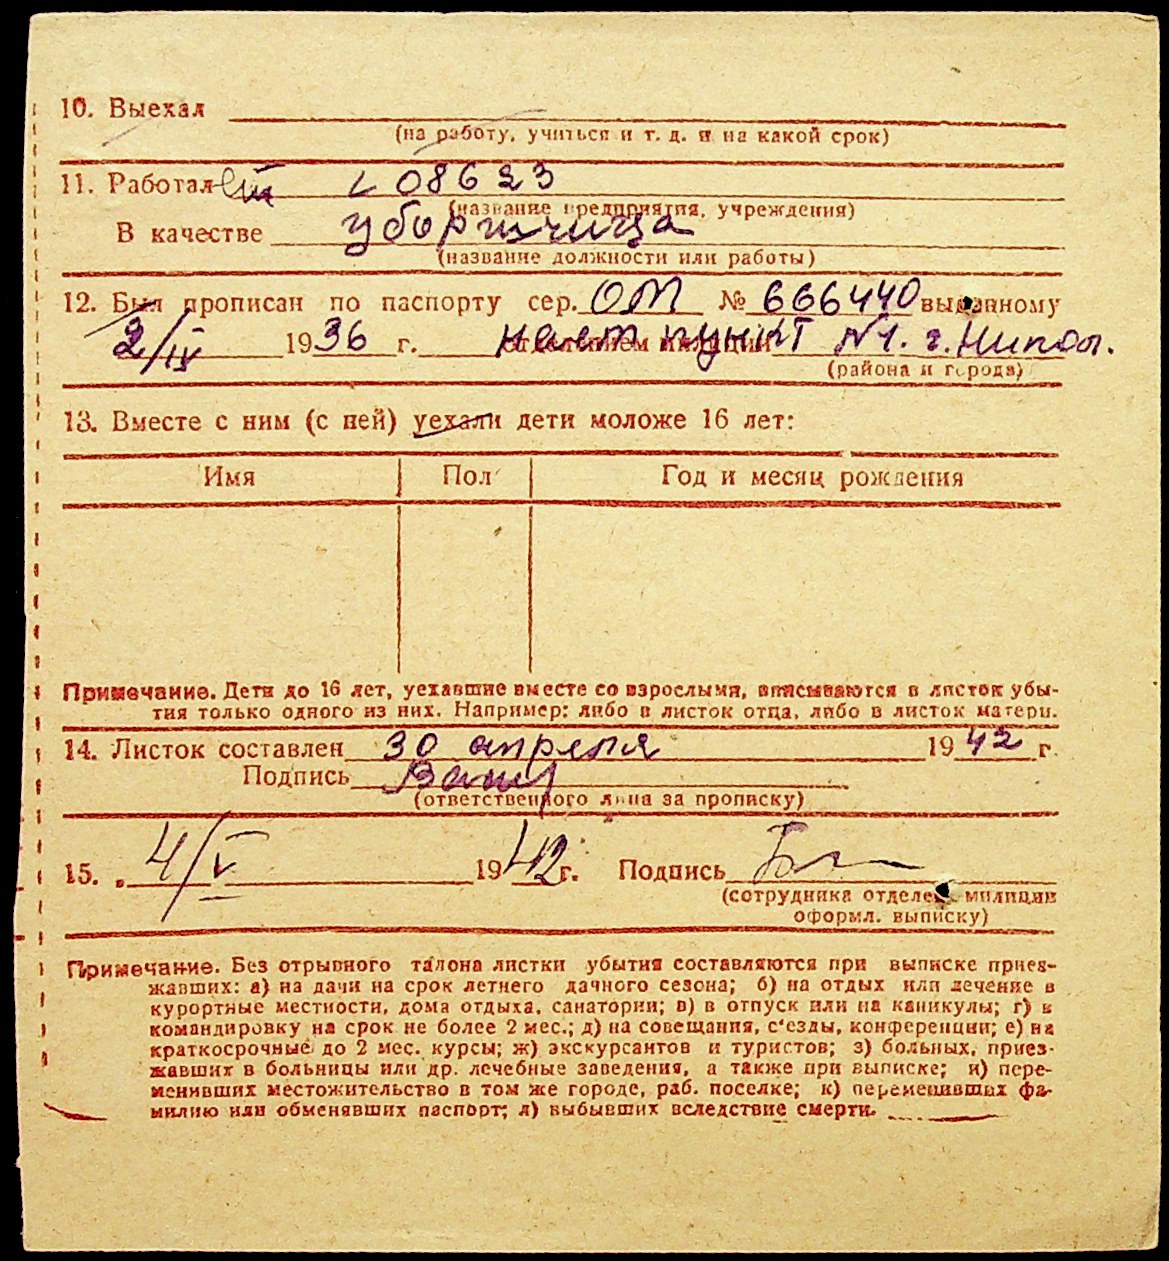 10. Выехал
(на работу, учиться и т. д. и на какой срок)
11. Работал L 08623
(название предприятия, учреждения)
В качестве уборщица
(название должности или работы)
12. Был прописан по паспорту сер. ОМ № 666440 выданному
2/IV 1936 г. отделением милиции пункт №1. г.
(района и города)
13. Вместе с ним (с ней) уехали дети моложе 16 лет:
Имя Пол Год и месяц рождения
Примечание. Дети до 16 лет, уехавшие вместе со взрослыми, вписываются в листок убы-
тия только одного из них. Например: либо в листок отца, либо в листок матери.
14. Листок составлен 30 апреля 1942 г.
Подпись
(ответственного лица за прописку)
15. 4/V 1942 г. Подпись
(сотрудника отделен. милиции
оформл. выписку)
Примечание. Без отрывного талона листки убытия составляются при выписке приез-
жавших: а) на дачи на срок летнего дачного сезона; б) на отдых или лечение в
курортные местности, дома отдыха, санатории; в) в отпуск или на каникулы; г) в
командировку на срок не более 2 мес.; д) на совещания, с'езды, конференции; е) на
краткосрочные до 2 мес. курсы; ж) экскурсантов и туристов; з) больных, приез-
жавших в больницы или др. лечебные заведения, а также при выписке; и) пере-
менивших местожительство в том же городе, раб. поселке; к) переменивших фа-
милию или обменявших паспорт; л) выбывших вследствие смерти.